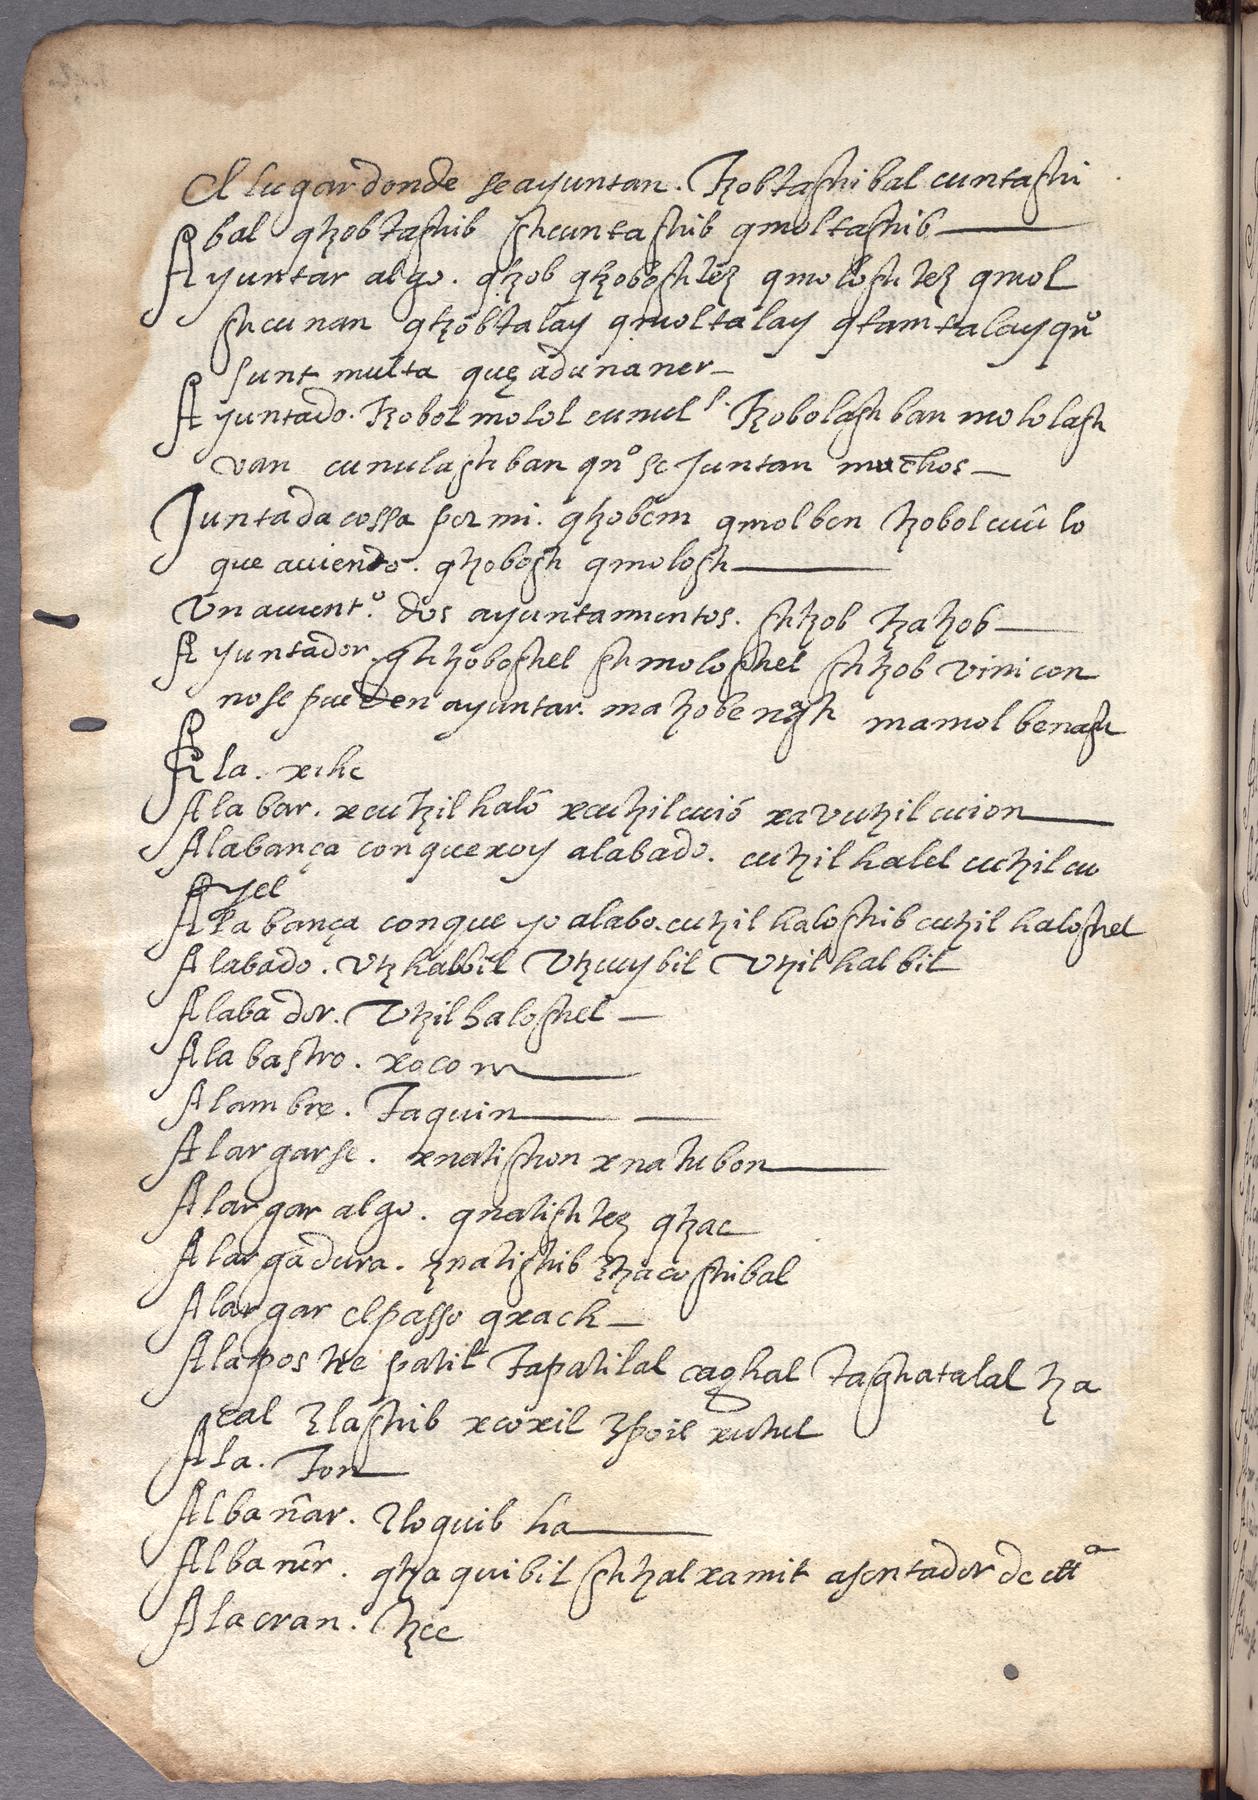 El lugar donde se ayuntan. tzobtaghibal cuntaghi
bal qtzobtaghib ghcuntaghib qmoltaghib
Ayuntar algo. qtzob qtzoboghtez qmologhtez qmol
ghcunan qtzobtalay qmoltalay qtamtalay qnᵒ
sunt multa quę adunaner
Ayuntado. tzobol molol cumul l. tzobolagh ban mololagh
van cumulaghban qnᵒ se juntan muchos
Juntada cossa por mi. qtzobem qmolben tzobol cuũ lo
que auiendo. qtzobogh qmologh
Vn aiuentᵒ. dos ayuntamientos. ghtzob tzatzob
Ayuntador. ghtzoboghel ghmologhel ghtzob vinicon
no se pueden ayuntar. matzobenagh mamolbenagh
Ala. xihc
Alabar. xcutzilhalõ xcutzilcuiõ xavutzilcuion
Alabança con que xoy alabado. cutzilhalel cutzilcu
yel
Alabança con que yo alabo. cutzilhaloghib cutzilhaloghel
Alabado. Vtzhalbil Vtzcuybil Vtzilhalbil
Alabador. Vtzilhaloghel
Alabastro. xocom
Alambre. Taquin
Alargarse. xnatighon xnatubon
Alargar algo. qnatightez qtzac
Alargadura. znatighib ztzacoghibal
Alargar el passo qxach
Alapostre patil tapatilal caghal taghatalal tza
cal zlaghib xcoxil zpoil xuhul
Ala. Ton
Albañar. zloquib ha
Albañir. qtzaquibil ghtzalxamit asentador de ettᵃ
Alacran. tzec